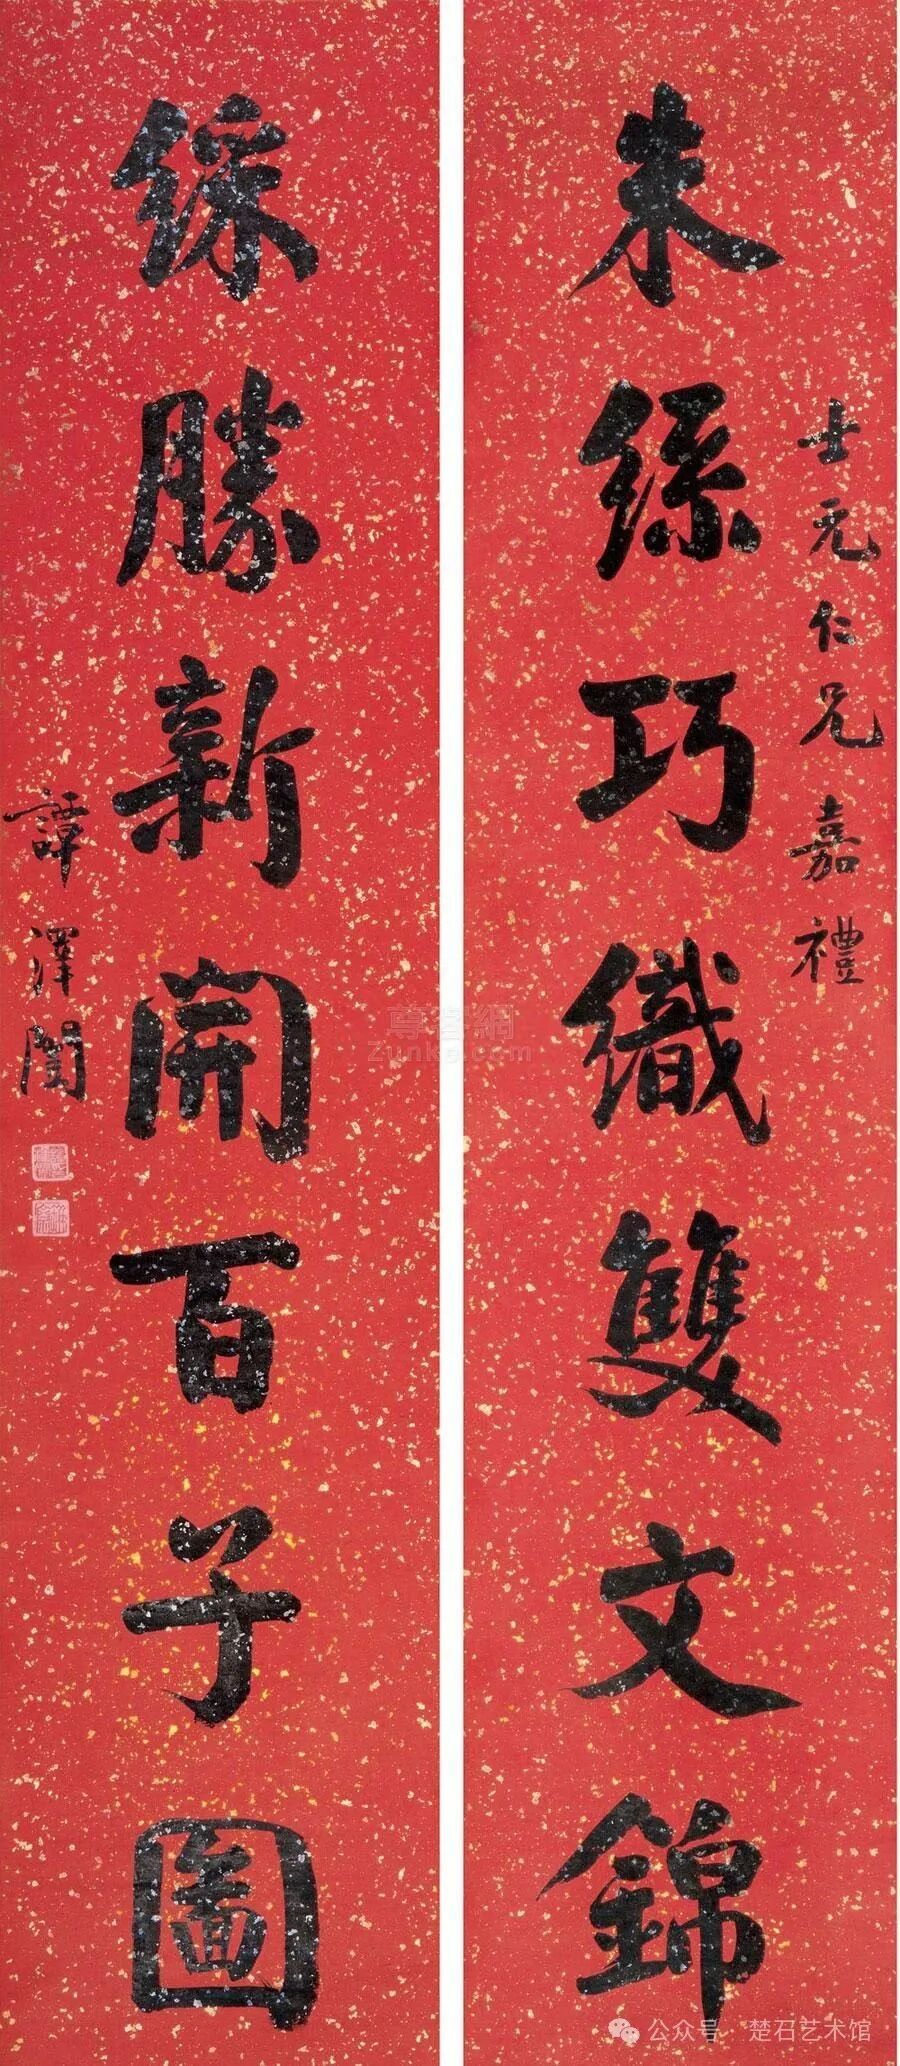 士元仁兄嘉禮
朱絲巧織雙文錦
綵勝新開百子圖
譚澤闓
尊客網
Zunke.com
公众号 · 楚石艺术馆